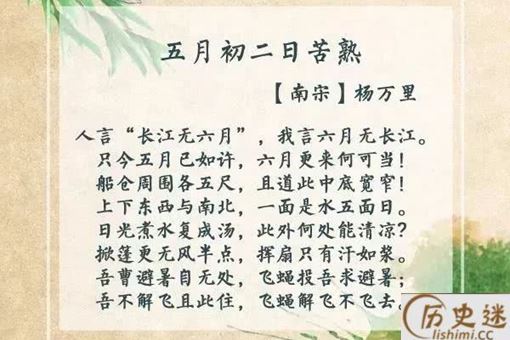 五月初二日苦熟
【南宋】杨万里
人言“长江无六月”，我言六月无长江。
只今五月已如许，六月更来何可当！
船仓周围各五尺，且道此中底宽窄！
上下东西与南北，一面是水五面日。
日光煮水复成汤，此外何处能清凉？
掀篷更无风半点，挥扇只有汗如浆。
吾曹避暑自无处，飞蝇投吾求避暑；
吾不解飞且此住，飞蝇解飞不飞去。
历史迷
lishimi.cc